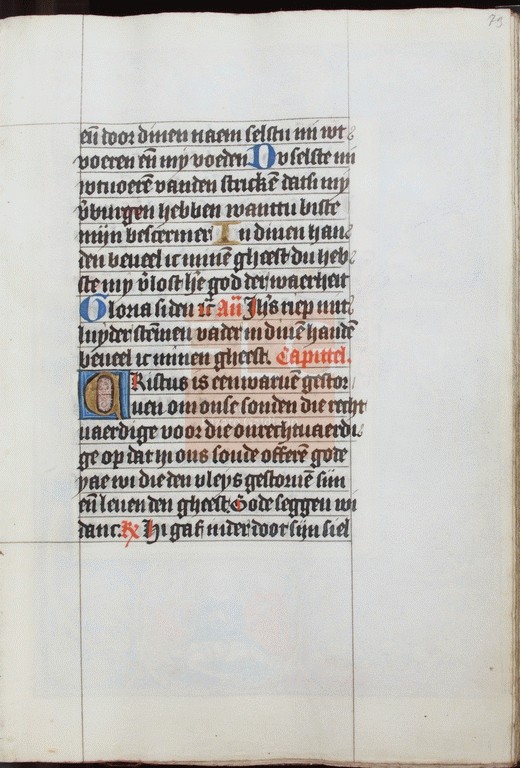 79
eñ door dinen naem selstu mi wt
voeren eñ my voeden Du selste mi
wtuoerē vanden strickē datsi my
v̄burgen hebben wanttu biste
mijn beschermer In dinen han
den beueel ic minē gheest du heb
ste my v̄lost he god der waerheit
Gloria si den ic̄ Añ Jhs riep mit
luyder stēmen vader in dinē handē
beueel ic minen gheest. Capittel.
CRistus is eenwaruē gestor
uen om onse sonden die recht
uaerdige voor die onrechtuaerdi
ge op dat hi ons soude offerē gode
yae wi die den vleys gestoruē sijn
eñ leuen den gheest. Gode seggen wi
danc. R Hi gaf nider door sijn siel